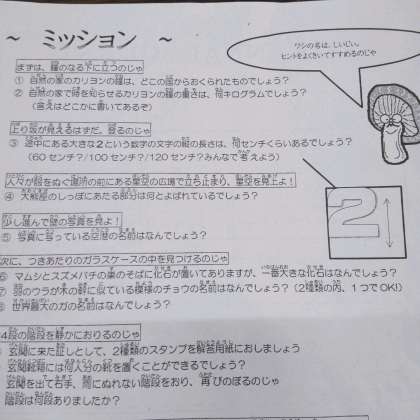 ～ ミッション ～
ワシの名は、しいじい。
ヒントをよくきいてすすめるのじゃ
まずは、鐘のなる下に立つのじゃ
① 自然の家のカリヨンの鐘は、どこの国からおくられたものでしょう？
② 自然の家で時を知らせるカリヨンの鐘の重さは、何キログラムでしょう？
（答えはどこかに書いてあるぞ）
上り坂が見えるはずだ、登るのじゃ
③ 途中にある大きな２という数字の文字の縦の長さは、何センチくらいあるでしょう？
（60センチ？/100センチ？/120センチ？みんなで考えよう）
2
人々が殻をぬぐ場所の前にある星空の広場で立ち止まり、星空を見上よ！
④ 大熊座のしっぽにあたる部分は何とよばれているでしょう？
少し進んで壁の写真を見よ！
⑤ 写真に写っている空港の名前はなんでしょう？
次に、つきあたりのガラスケースの中を見つけるのじゃ
⑥ マムシとスズメバチの巣のそばに化石が置いてありますが、一番大きな化石はなんでしょう？
⑦ 羽のウラが木の幹に似ている模様のチョウの名前はなんでしょう？（2種類の内、1つでOK!）
⑧ 世界最大のガの名前はなんでしょう？
4段の階段を静かにおりるのじゃ
玄関に来た証しとして、2種類のスタンプを解答用紙におしましょう
玄関靴箱には何人分の靴を置くことができるでしょう？
玄関を出て右手、雨にぬれない階段をおり、再びのぼるのじゃ
階段は何段ありましたか？